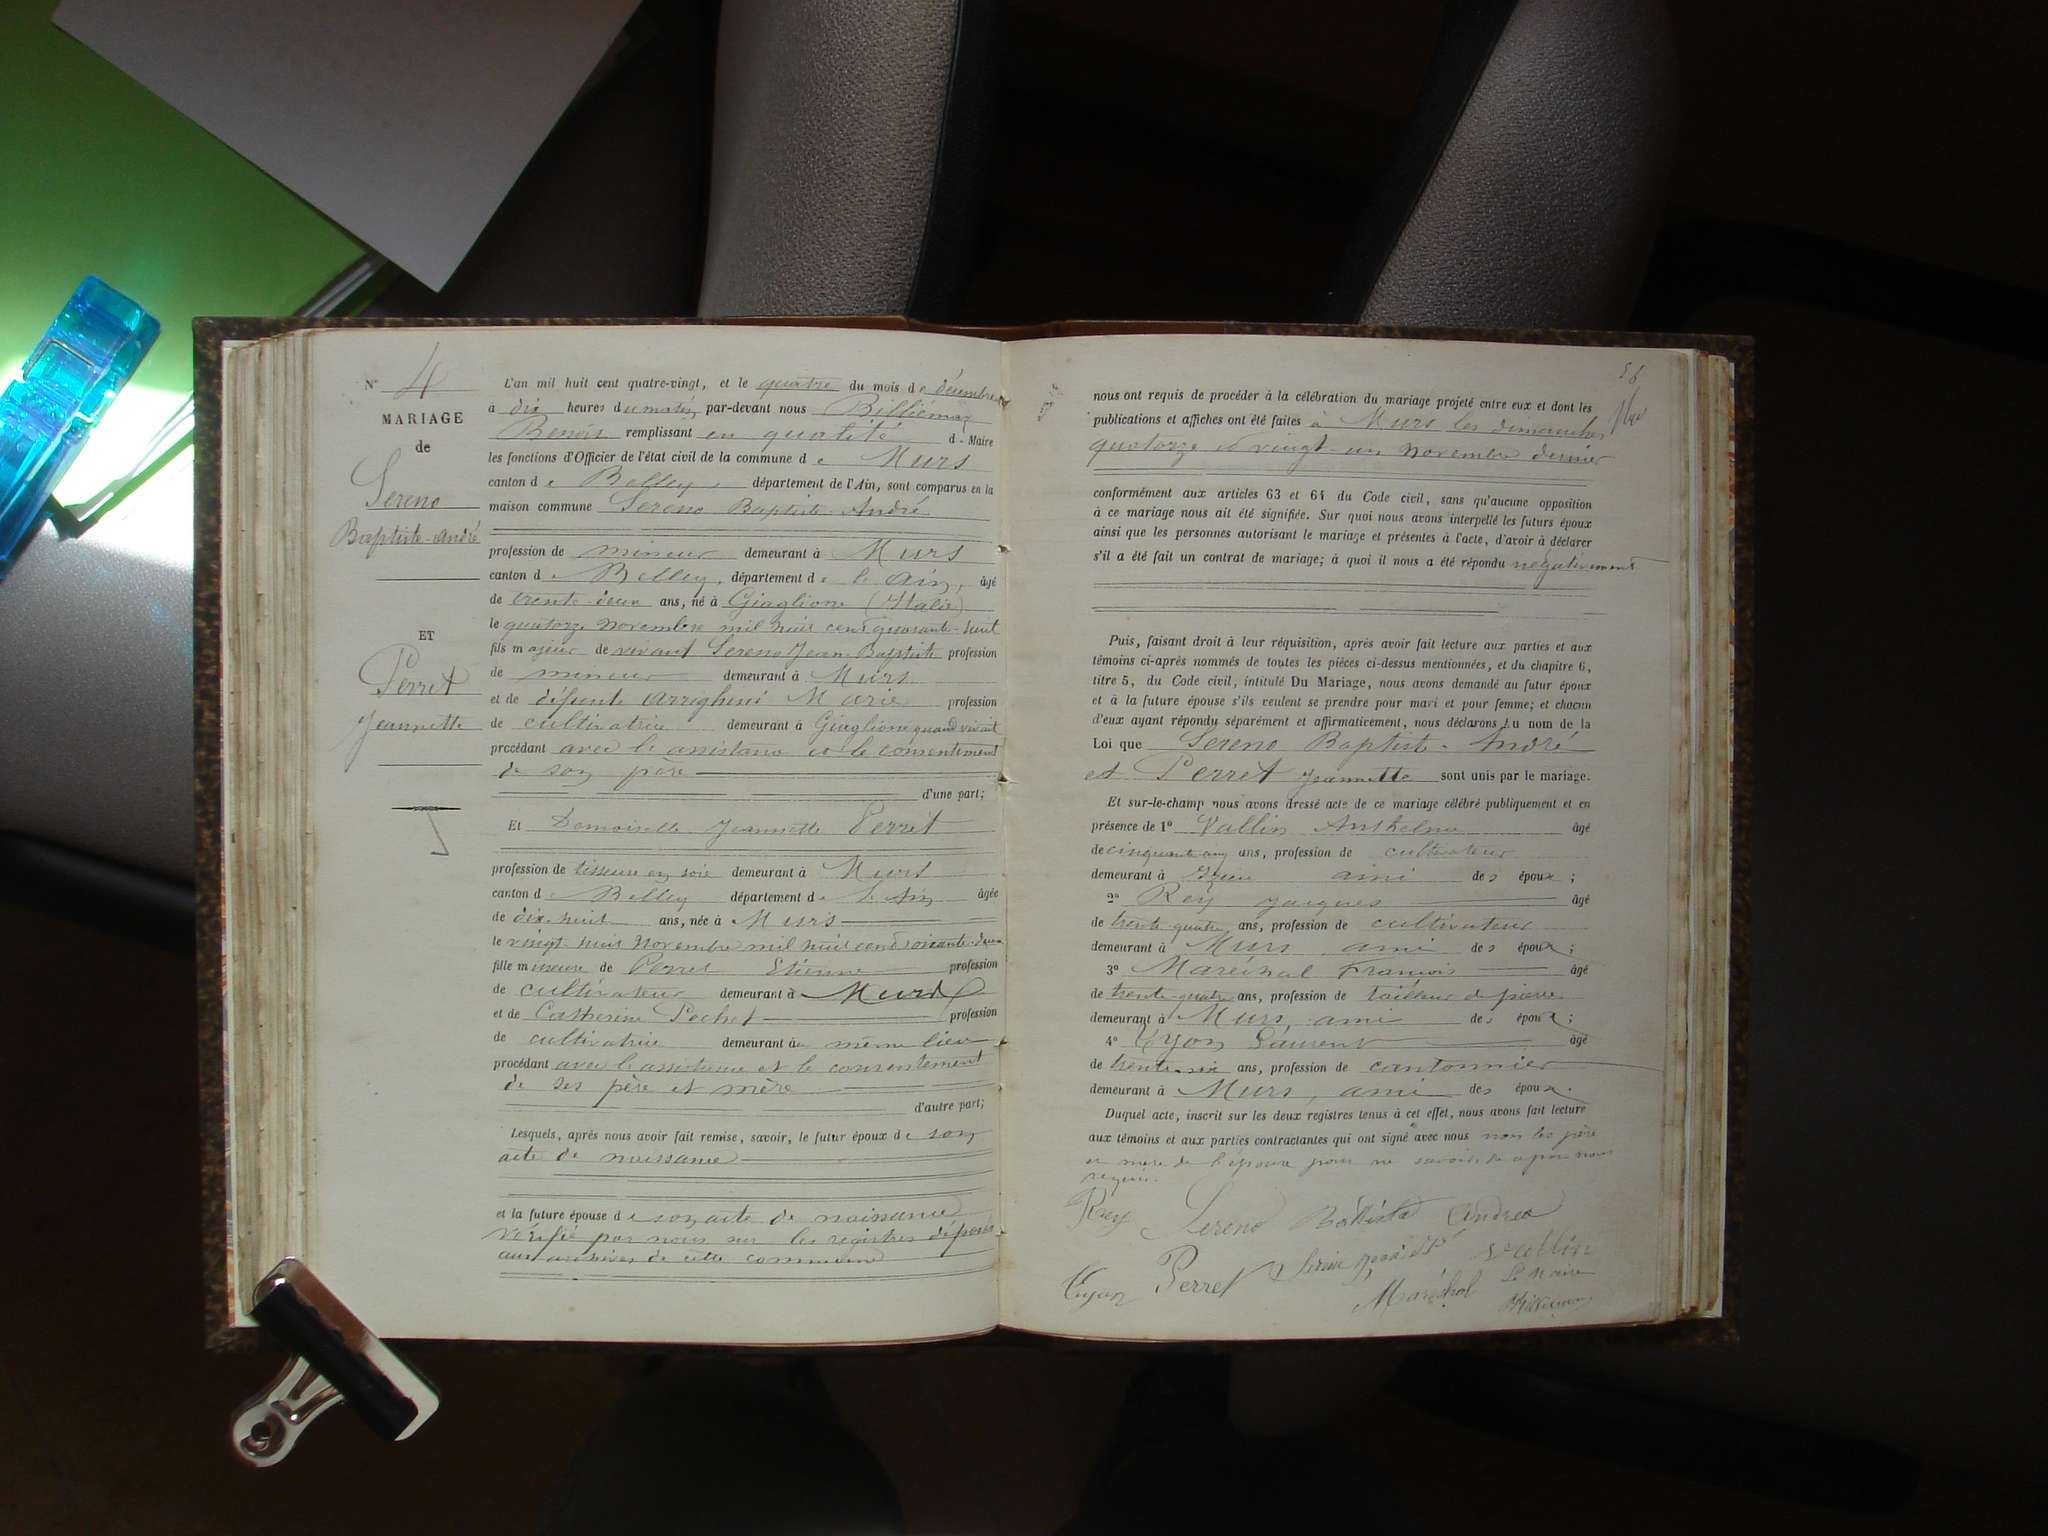 N° 4
MARIAGE
de
Sereno
Baptiste-André
ET
Perret
Jeannette
L'an mil huit cent quatre-vingt, et le quatre du mois de décembre
à dix heures du matin par-devant nous Billiémaz
Benoit remplissant en qualité d Maire
les fonctions d'Officier de l'état civil de la commune de Murs
canton de Belley département de l'Ain, sont comparus en la
maison commune Sereno Baptiste-André
profession de mineur demeurant à Murs
canton de Belley, département de l'Ain, âgé
de trente-deux ans, né à Giaglione (Italie)
le quatorze novembre mil huit cent quarante-huit
fils majeur de vivant Sereno Jean Baptiste profession
de mineur demeurant à Murs
et de défunte Marie profession
de cultivatrice demeurant à Giaglione quand vivait
procédant avec l'assistance et le consentement
de son père
d'une part;
Et Demoiselle Jeannette Perret
profession de tisseuse en soie demeurant à Murs
canton de Belley département de l'Ain âgée
de dix-huit ans, née à Murs
le vingt-huit novembre mil huit cent soixante-deux
fille mineure de Perret Etienne profession
de cultivateur demeurant à Murs
et de Catherine Pochet profession
de cultivatrice demeurant au même lieu
procédant avec l'assistance et le consentement
de ses père et mère
d'autre part;
Lesquels, après nous avoir fait remise, savoir, le futur époux de son
acte de naissance
et la future épouse de son acte de naissance
vérifié par nous sur les registres déposés
aux archives de cette commune
58
nous ont requis de procéder à la célébration du mariage projeté entre eux et dont les
publications et affiches ont été faites à Murs les dimanches
quatorze et vingt-un novembre dernier
conformément aux articles 63 et 64 du Code civil, sans qu'aucune opposition
à ce mariage nous ait été signifiée. Sur quoi nous avons interpellé les futurs époux
ainsi que les personnes autorisant le mariage et présentes à l'acte, d'avoir à déclarer
s'il a été fait un contrat de mariage; à quoi il nous a été répondu négativement
Puis, faisant droit à leur réquisition, après avoir fait lecture aux parties et aux
témoins ci-après nommés de toutes les pièces ci-dessus mentionnées, et du chapitre 6,
titre 5, du Code civil, intitulé Du Mariage, nous avons demandé au futur époux
et à la future épouse s'ils veulent se prendre pour mari et pour femme; et chacun
d'eux ayant répondu séparément et affirmativement, nous déclarons au nom de la
Loi que Sereno Baptiste-André
et Perret Jeannette sont unis par le mariage.
Et sur-le-champ nous avons dressé acte de ce mariage célébré publiquement et en
présence de 1° Vallin Anthelme âgé
de cinquante ans, profession de cultivateur
demeurant à Izieu ami des époux;
2° Rey Jacques âgé
de trente-quatre ans, profession de cultivateur
demeurant à Murs ami des époux;
3° Maréchal François âgé
de trente-quatre ans, profession de tailleur de pierre
demeurant à Murs, ami des époux;
4° Eyon Laurent âgé
de trente-six ans, profession de cantonnier
demeurant à Murs, ami des époux.
Duquel acte, inscrit sur les deux registres tenus à cet effet, nous avons fait lecture
aux témoins et aux parties contractantes qui ont signé avec nous non les père
et mère de l'épouse pour ne savoir de ce par nous
requis.
Rey Sereno Battista Andrea
Eyon Perret Vallin
Maréchal Le Maire
Billiémaz